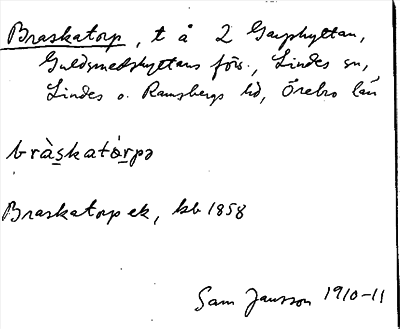 Braskatorp, t å 2 Garphyttan,
Guldsmedshyttans förs., Lindes sn,
Lindes o. Ramsbergs hd, Örebro län
bràskatòrpə
Braskatorp ek, kb 1858
Sam Jansson 1910-11